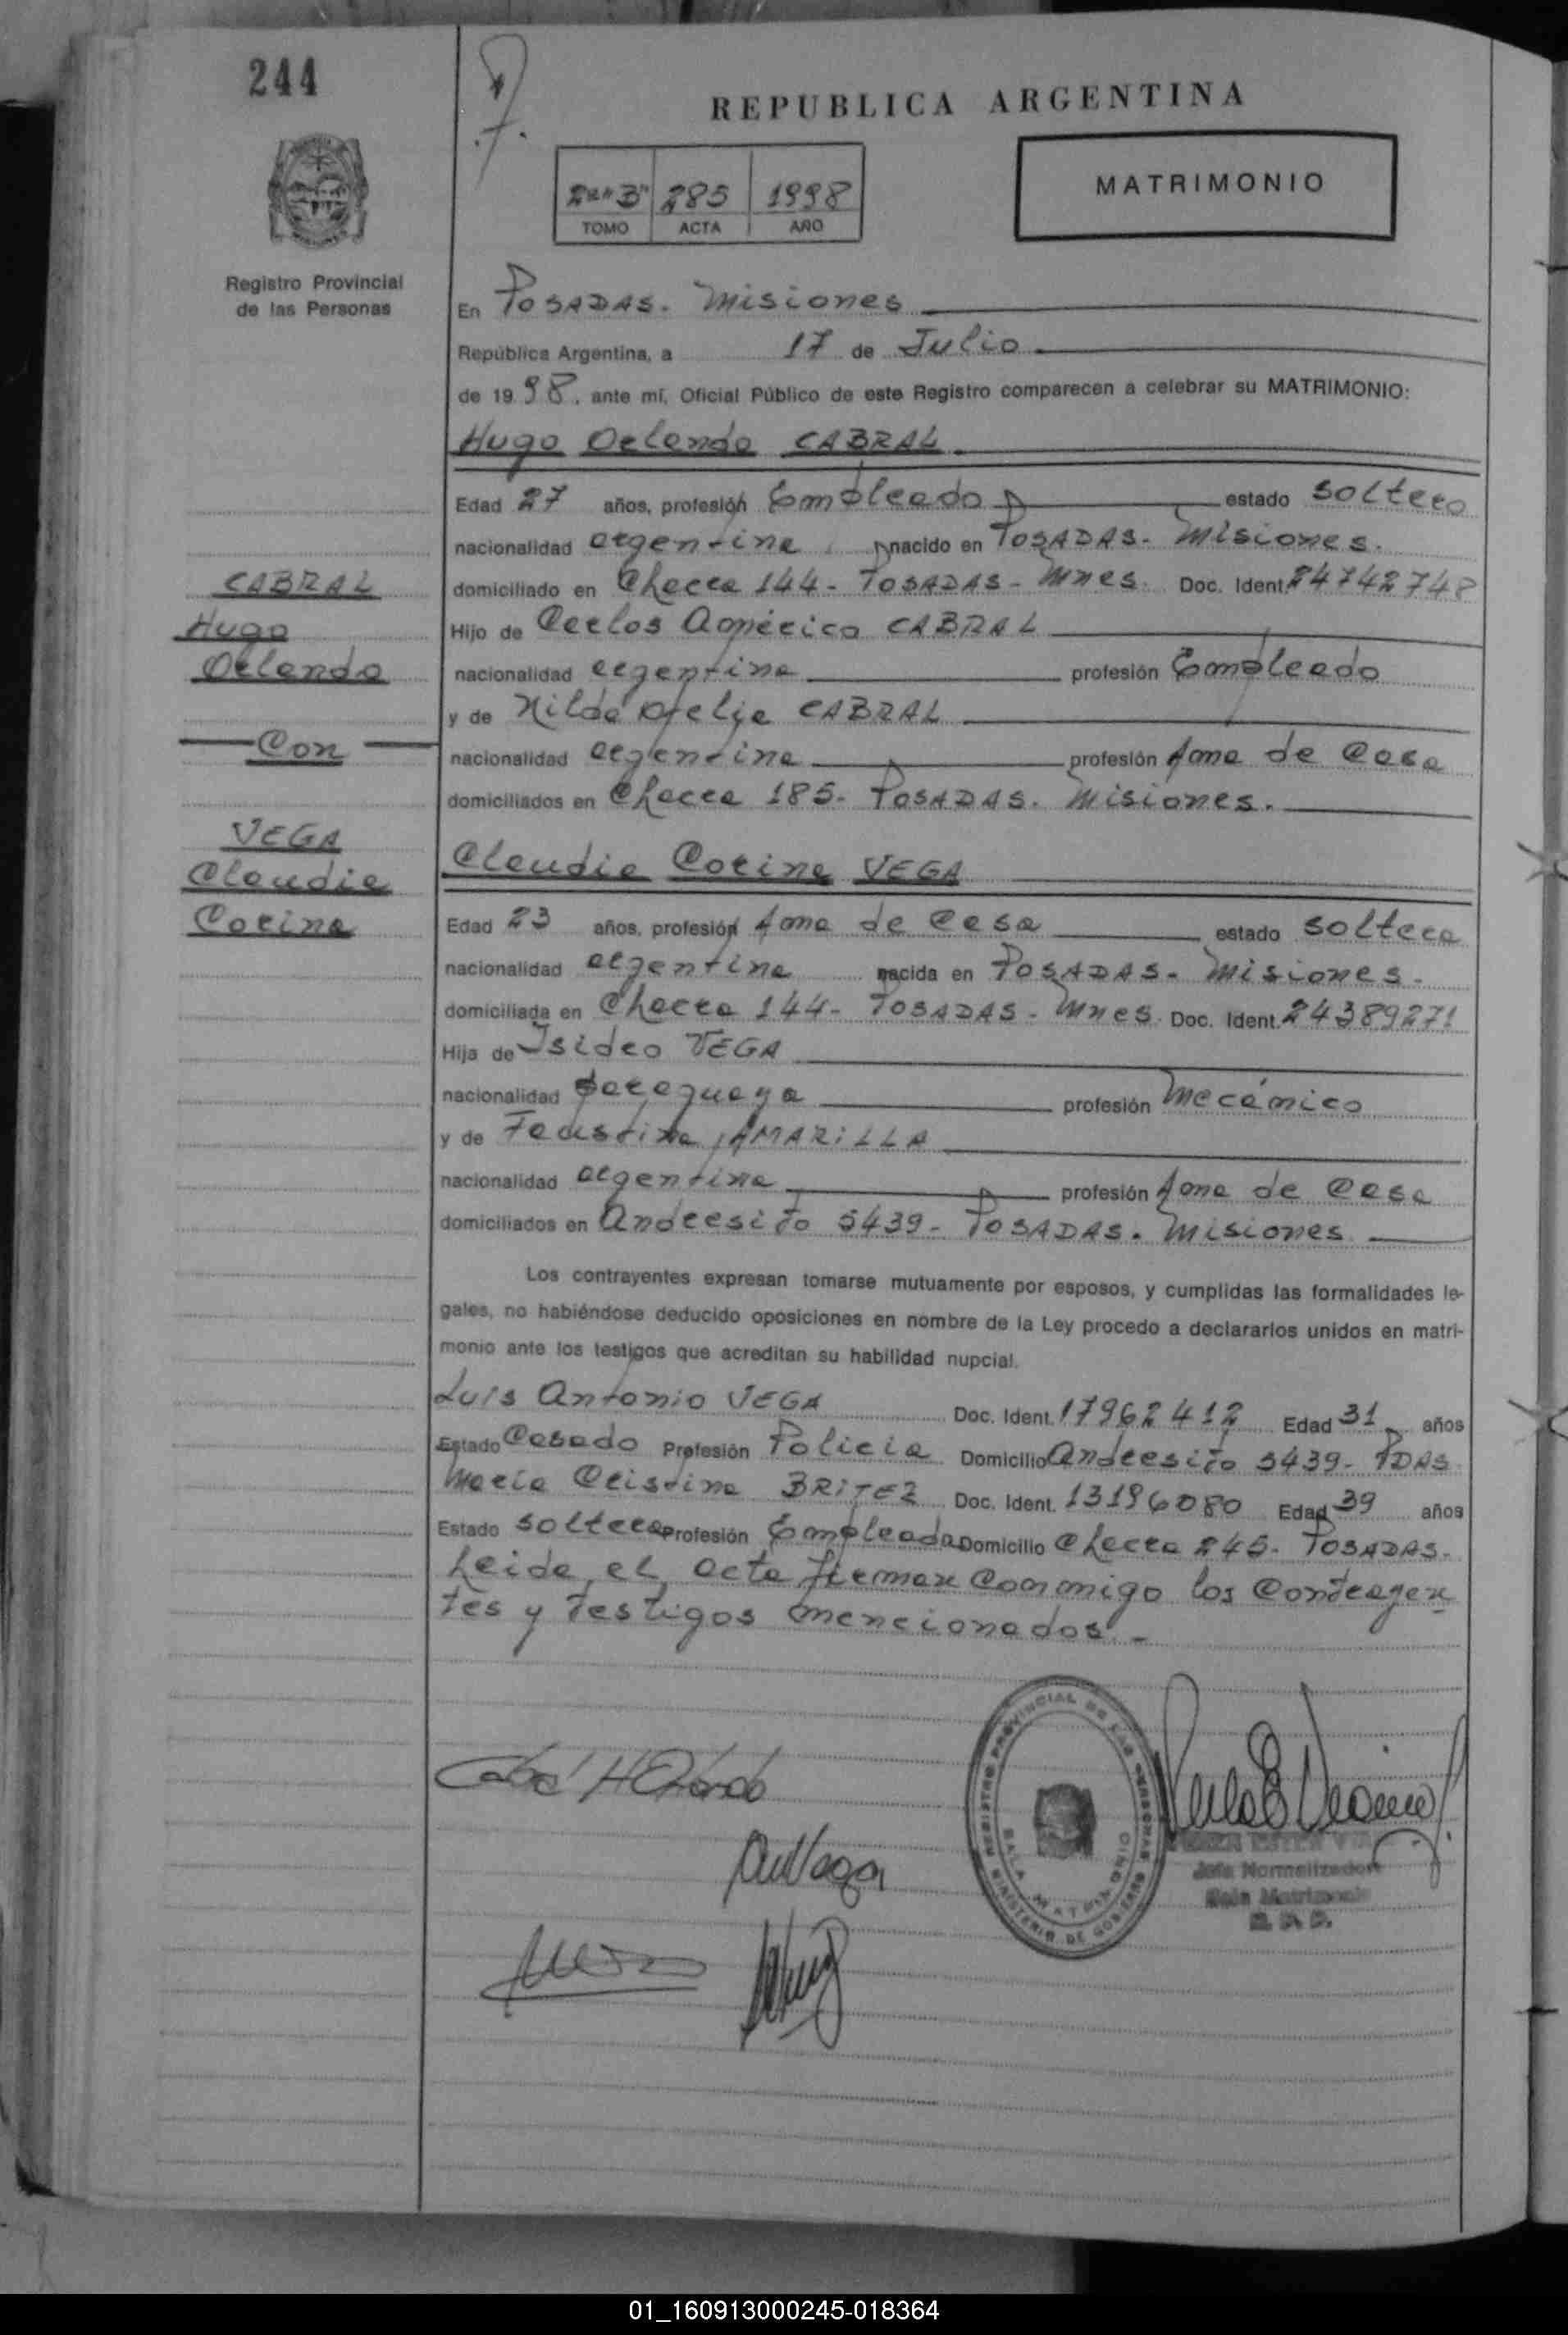 244
REPUBLICA ARGENTINA
MATRIMONIO
2do "B" 285 1998
TOMO ACTA AÑO
Registro Provincial
de las Personas
En POSADAS. Misiones
República Argentina, a 17 de Julio
de 1998, ante mí, Oficial Público de este Registro comparecen a celebrar su MATRIMONIO:
Hugo Orlando CABRAL
Edad 27 años, profesión Empleado estado soltero
nacionalidad argentina, nacido en POSADAS. Misiones.
domiciliado en Chacra 144- POSADAS- Mnes. Doc. Ident. 24742748
Hijo de Carlos Américo CABRAL
nacionalidad argentina profesión Empleado
y de Nilda Ofelia CABRAL
nacionalidad argentina profesión Ama de Casa
domiciliados en Chacra 185- POSADAS. Misiones.
CABRAL
Hugo
Orlando
Con
VEGA
Claudia
Corina
Claudia Corina VEGA
Edad 23 años, profesión Ama de Casa estado soltera
nacionalidad argentina nacida en POSADAS- Misiones.
domiciliada en Chacra 144- POSADAS- Mnes. Doc. Ident. 24389271
Hija de Isidro VEGA
nacionalidad paraguaya profesión Mecánico
y de Faustina AMARILLA
nacionalidad argentina profesión Ama de Casa
domiciliados en Andresito 5439- POSADAS. Misiones
Los contrayentes expresan tomarse mutuamente por esposos, y cumplidas las formalidades le-
gales, no habiéndose deducido oposiciones en nombre de la Ley procedo a declararlos unidos en matri-
monio ante los testigos que acreditan su habilidad nupcial.
Luis Antonio VEGA Doc. Ident. 17962412 Edad 31 años
Estado Casado Profesión Policia Domicilio Andresito 5439- PDAS
María Cristina BRITEZ Doc. Ident. 13196080 Edad 39 años
Estado soltera Profesión Empleada Domicilio Chacra 245- POSADAS.
Leida el acta firman conmigo los contrayen
tes y testigos mencionados.-
REGISTRO PROVINCIAL DE LAS PERSONAS
MINISTERIO DE GOBIERNO
SALA MATRIMONIO
Jefa Normalizadora
Sala Matrimonio
01_160913000245-018364